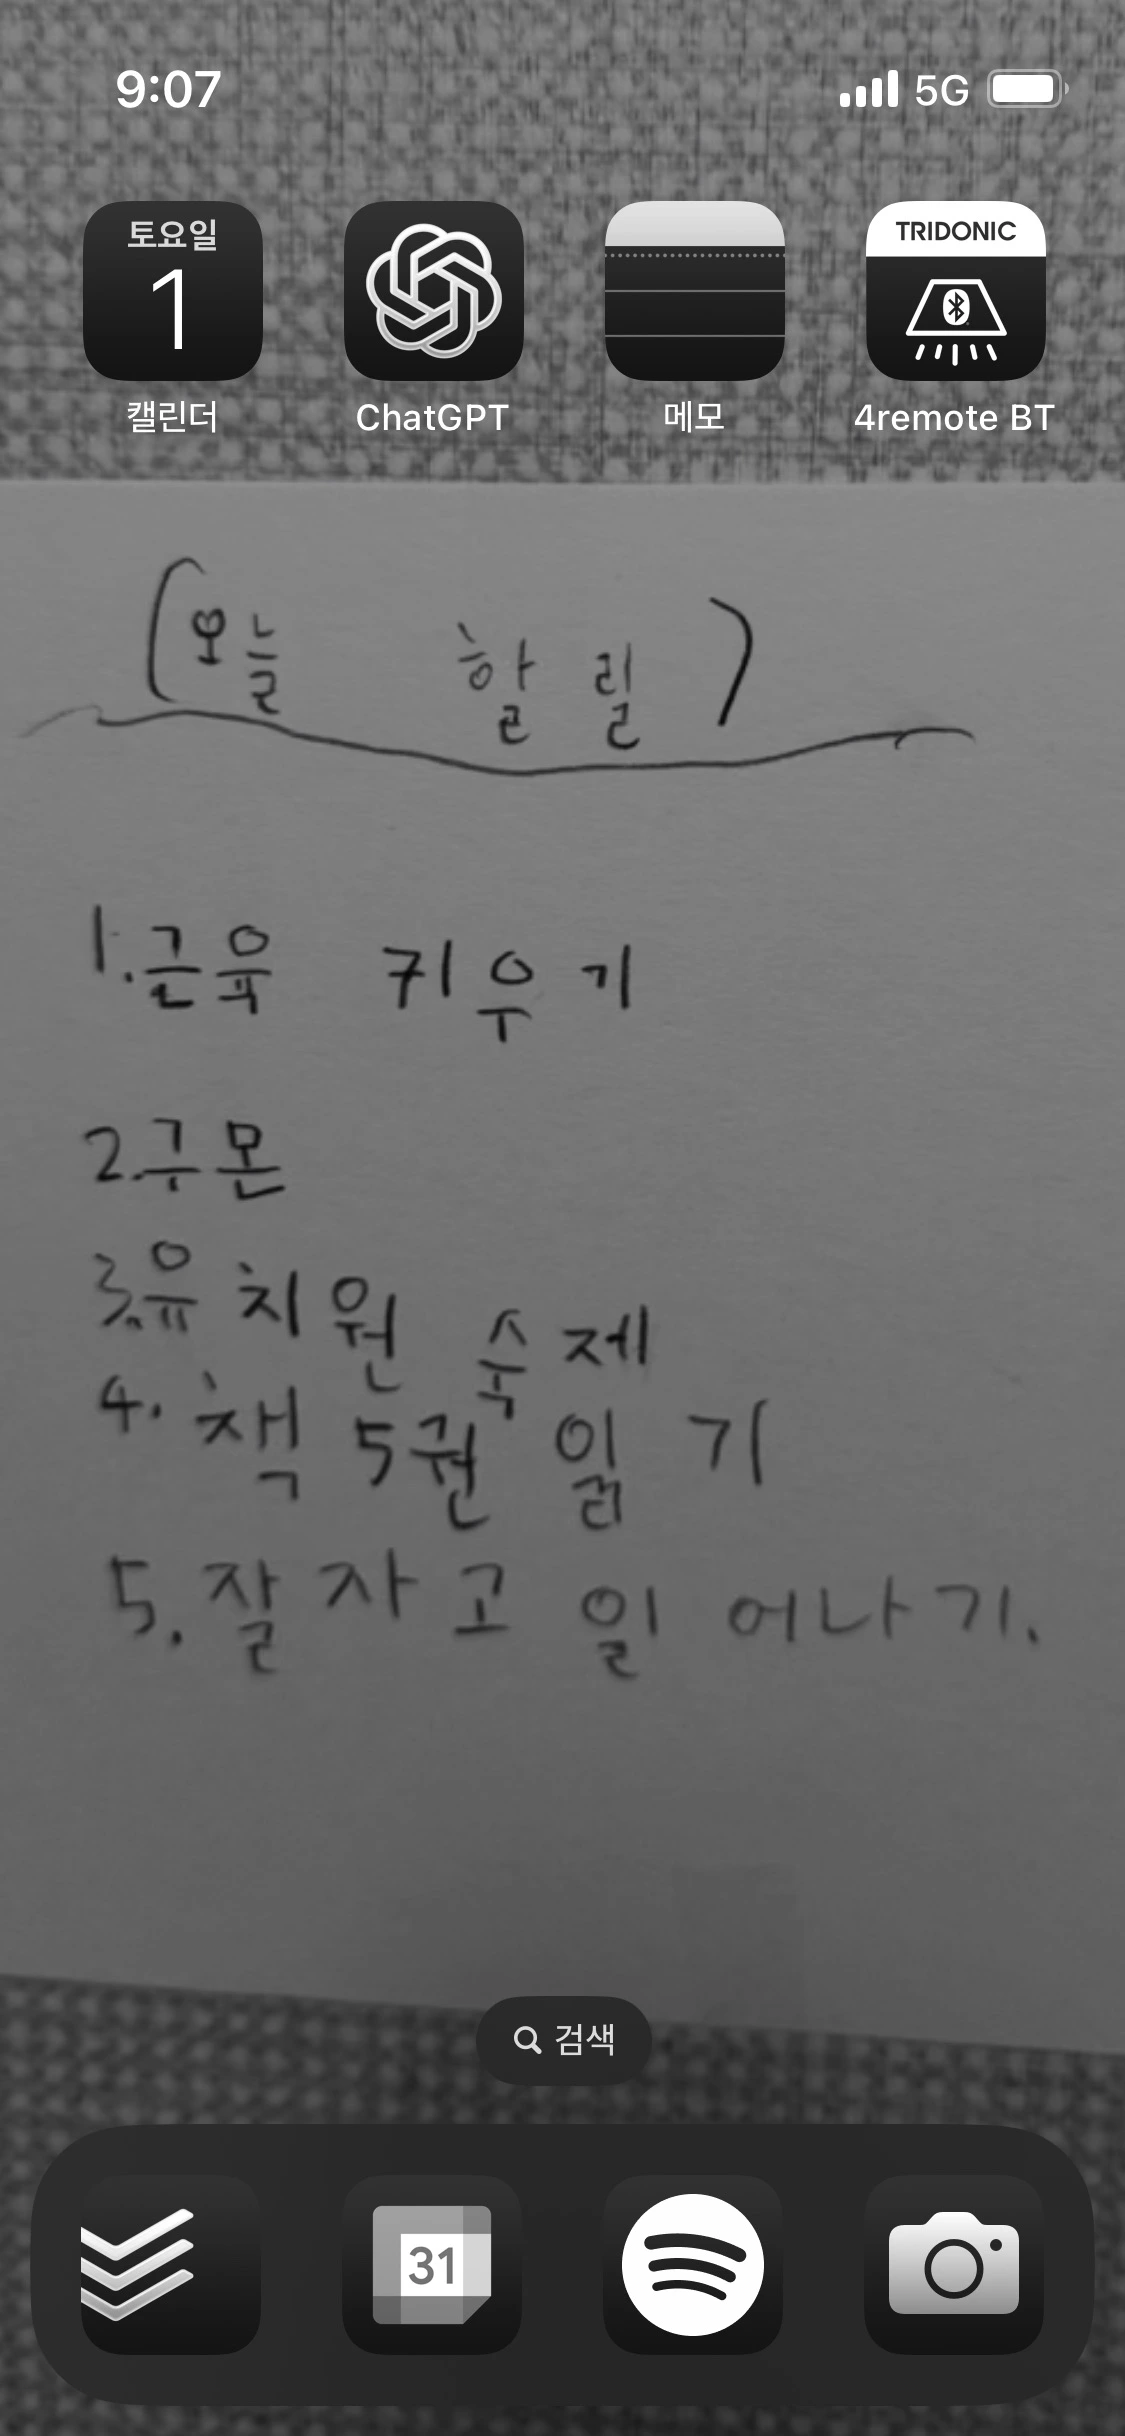 9:07
5G
토요일
1
TRIDONIC
캘린더
ChatGPT
메모
4remote BT
(오늘 할 일)
1.근육 키우기
2.구몬
3.유치원 숙제
4. 책 5권 읽기
5. 잘 자고 일어나기.
검색
31